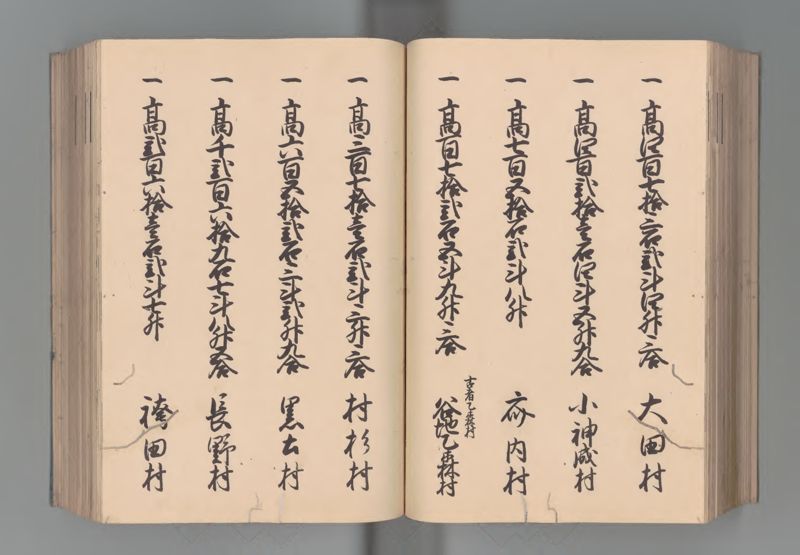 一高四百七拾三石弐斗四升三合 大田村
一高四百弐拾壱石四斗五升九合 小神成村
一高七百五拾石弐斗八升 斉内村
一高百七拾弐石五斗九升三合 古者乙森村 谷地乙森村
一高三百七拾壱石弐斗三升三合 村杉村
一高六百五拾弐石三斗弐升九合 黒土村
一高千弐百六拾九石七斗八升五合 長野村
一高弐百六拾壱石弐斗七升 袴田村